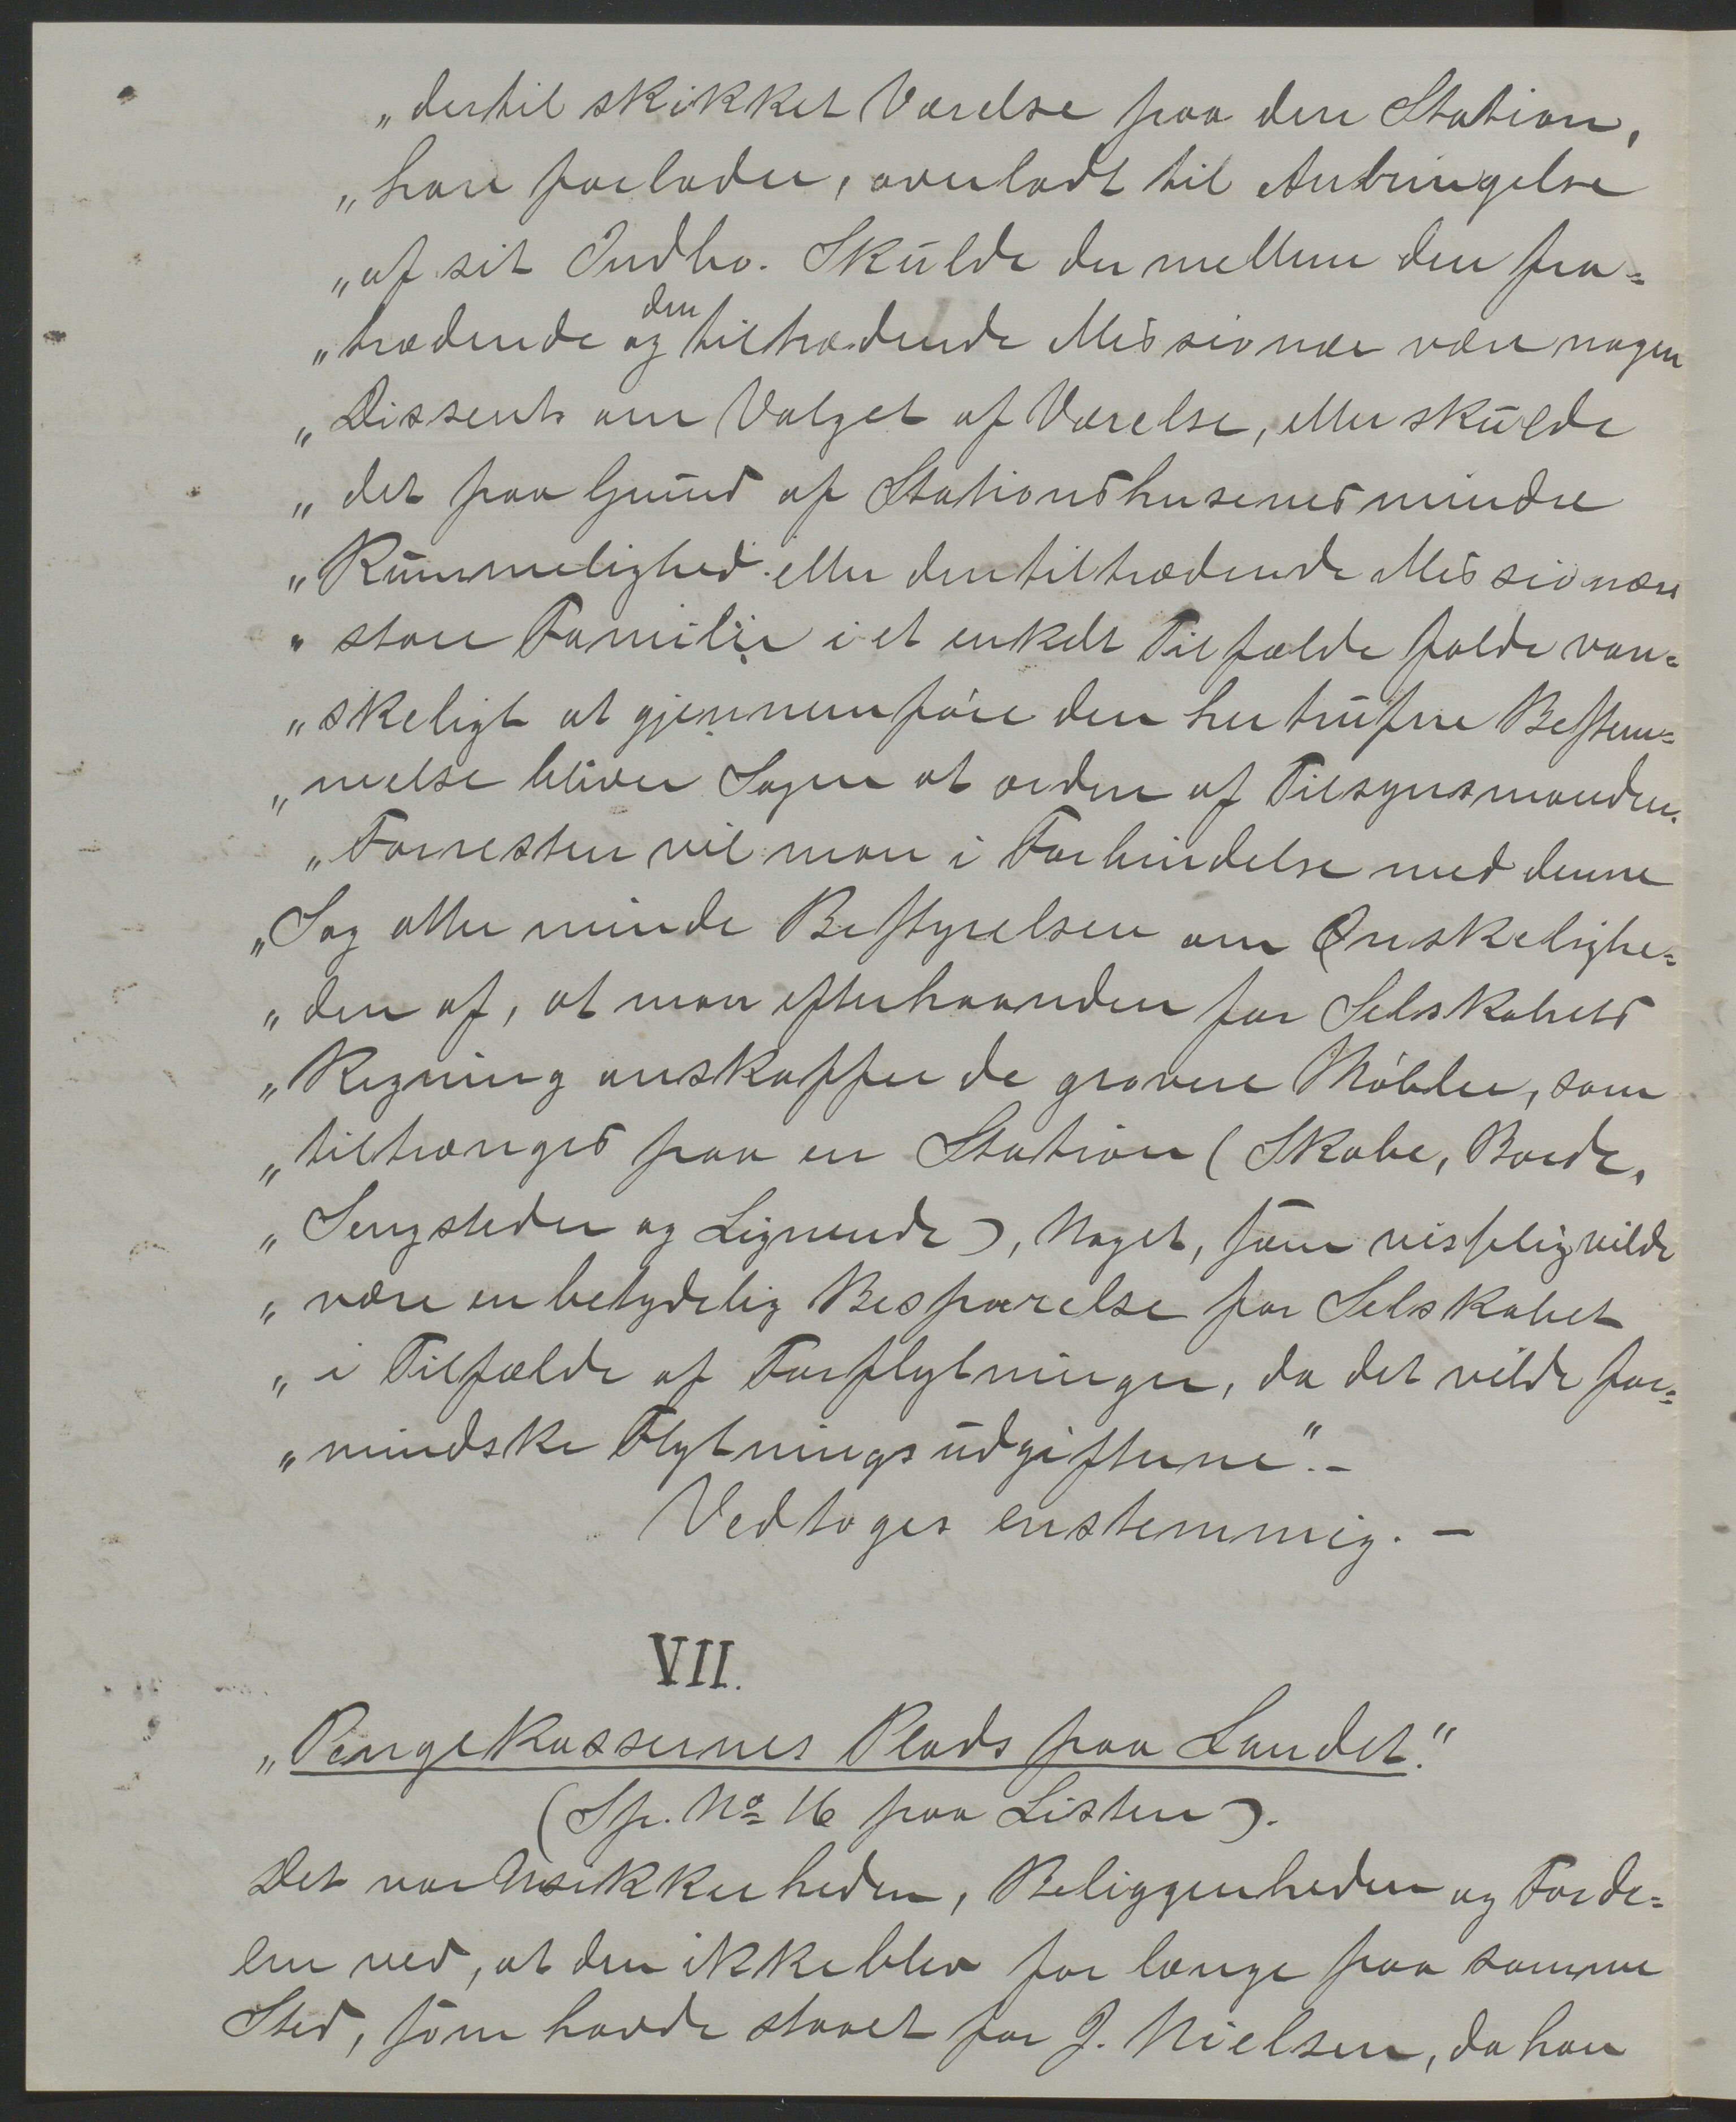 „dertil skikket Værelse paa den Station,
„han forlader, overladt til Anbringelse
„af sit Indbo. Skulde der mellem den fra=
„trædende og den tiltrædende Missionær være nogen
„Dissents om Valget af Værelse, eller skulde
„det paa Grund af Stationshusenes mindre
„Rummelighed eller den tiltrædende Missionærs
„store Familie i et enkelt Tilfælde falde van=
„skeligt at gjennemføre den her trufne Bestem=
„melse bliver Sagen at ordne af Tilsynsmanden.
„Forresten vil man i Forbindelse med denne
„Sag atter minde Bestyrelsen om Ønskelighe=
„den af, at man efterhaanden for Selskabets
„Regning anskaffer de grovere Møbler, som
„tiltrænges paa en Station (Skabe, Borde,
„Sengsteder og Lignende), Noget, som visselig vilde
„være en betydelig Besparelse for Selskabet
„i Tilfælde af Forflytninger, da det vilde for=
„mindske Flytningsudgifterne".—
Vedtoges enstemmig. —
VII.
„Pengekassernes Plads paa Landet."
(Sp. No 16 paa Listen).
Det var Usikkerheden, Beliggenheden og Forde=
len ved, at den ikke blev for længe paa samme
Sted, som havde staaet for J. Nielsen, da han